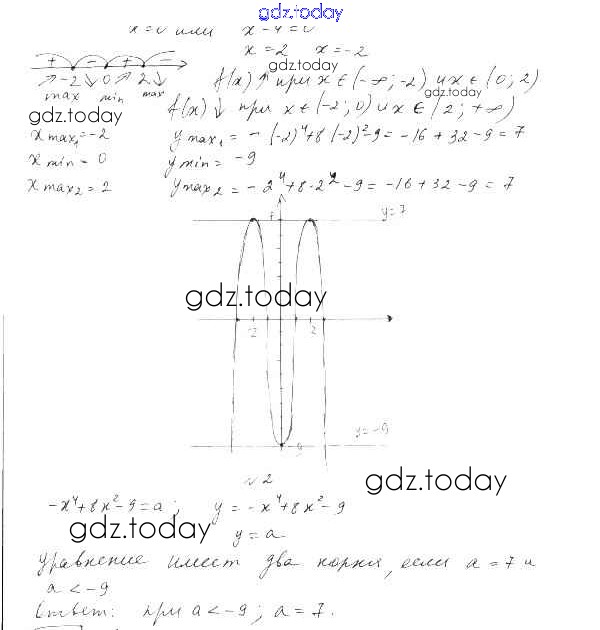 gdz.today
x=0 или x-4=0
x=2 x=-2
+ - + -
gdz.today
-2 0 2
f(x)↑ при x∈(-∞;-2) и x∈(0;2)
max min max
gdz.today
f(x)↓ при x∈(-2;0) и x∈(2;+∞)
gdz.today
x max₁=-2 y max₁= -(-2)⁴+8(-2)²-9=-16+32-9=7
x min=0 y min=-9
x max₂=2 y max₂=-2⁴+8·2²-9=-16+32-9=7
7 y=7
gdz.today
-2 2
y=-9
-9
№2
gdz.today
-x⁴+8x²-9=a; y=-x⁴+8x²-9
gdz.today
y=a
уравнение имеет два корня, если a=7 и
a<-9
Ответ: при a<-9; a=7.